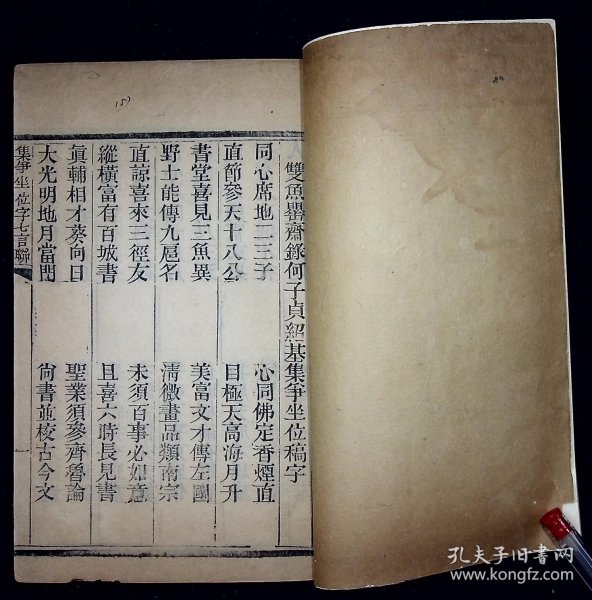 雙魚罌齋錄何子貞紹基集爭坐位稿字
同心席地二三子
直節參天十八公
書堂喜見三魚異
野士能傳九扈名
直諒喜來三徑友
縱橫富有百城書
眞輔相才葵向日
大光明地月當門
心同佛定香煙直
目極天高海月升
美富文才傳左國
清微畫品類南宗
未須百事必如意
且喜六時長見書
聖業須參齊魯論
尙書並校古今文
集爭坐位字七言聯
孔夫子旧书网
www.kongfz.com